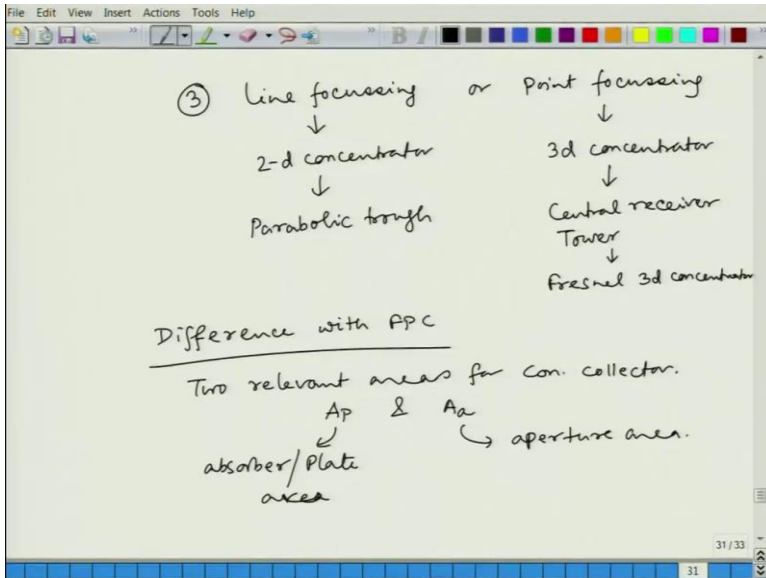 File Edit View Insert Actions Tools Help
③ Line focussing or Point focussing
↓ ↓
2-d concentrator 3d concentrator
↓ ↓
Parabolic trough Central receiver
Tower
↓
Fresnel 3d concentrator
Difference with FPC
Two relevant areas for con. collector.
Ap & Aa
absorber/Plate area
aperture area.
31/33
31